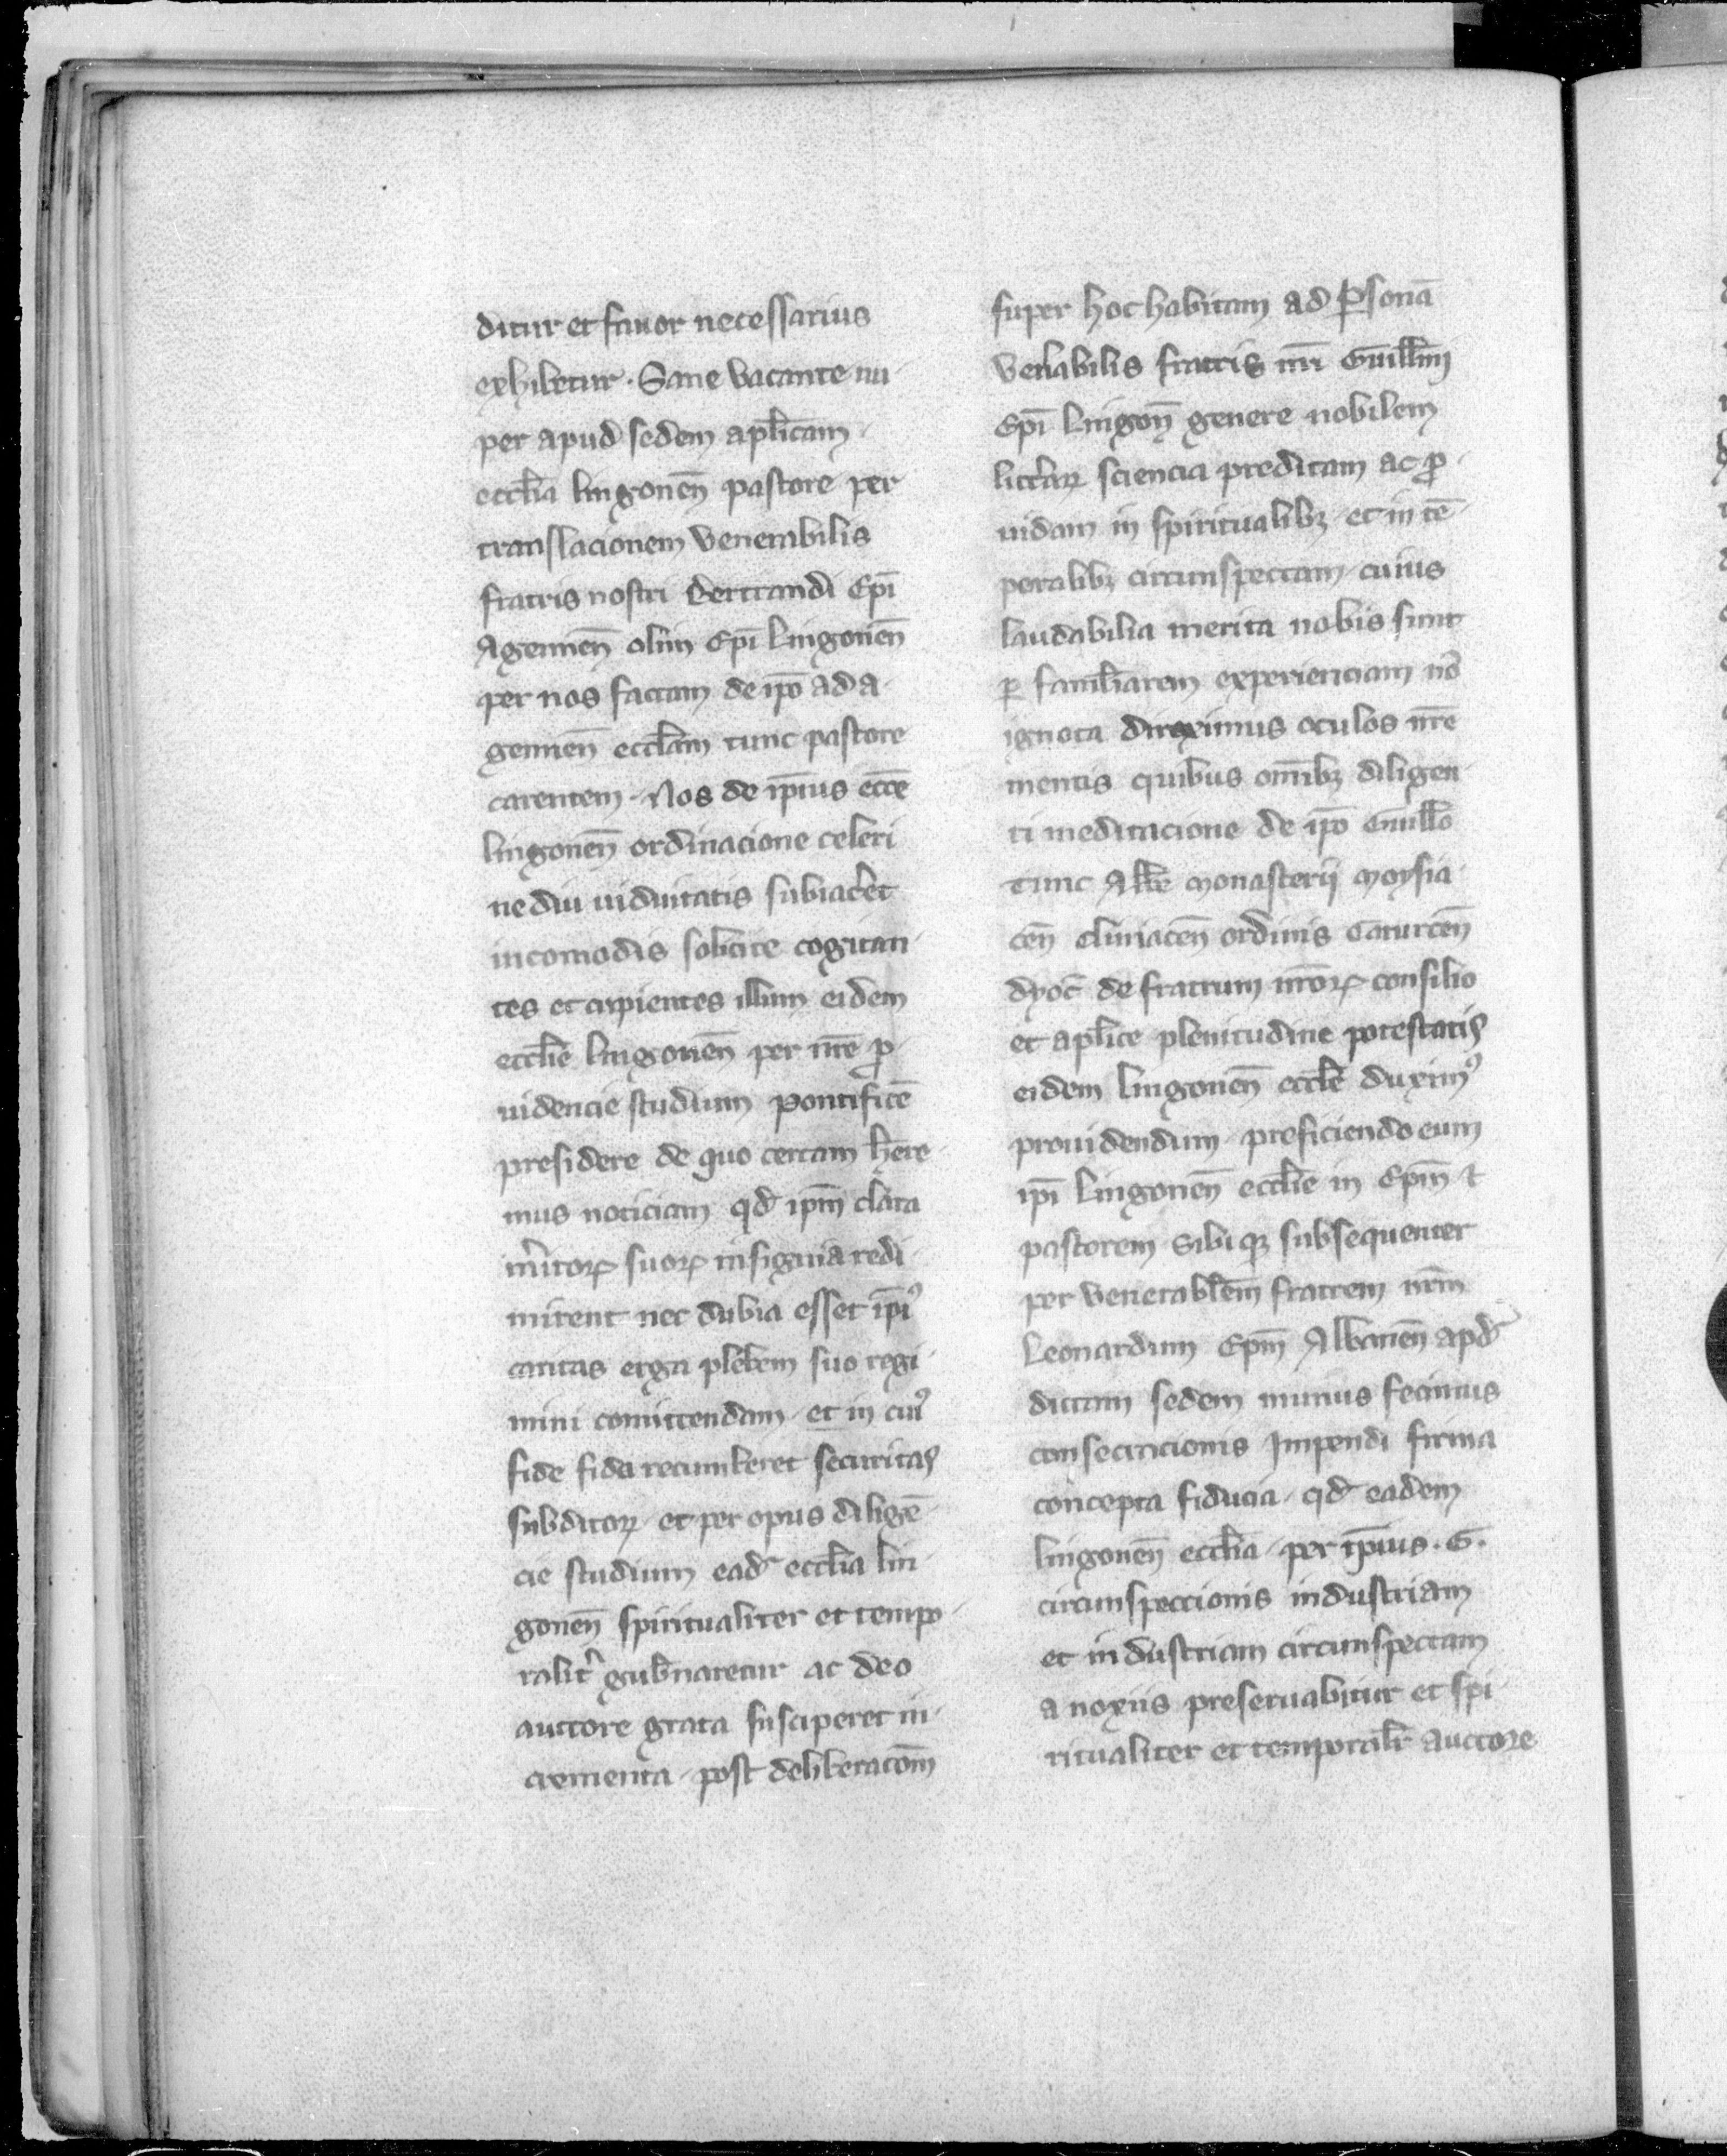 ditur et fauor necessarius
exhibetur. Sane vacante nu
per apud sedem apl̅icam
eccl̅ia lingonen̅ pastore per
translacionem venerabilis
fratris nostri Bertrandi Ep̅i
Agennen̅ olim Ep̅i Lingonen̅
per nos factam de ip̅o ad a
gennen̅ eccl̅am tunc pastore
carentem. Nos de ip̅ius ecc̅e
lingonen̅ ordinacione celeri
ne diu uiduitatis subiac̾et
incomodis sollicite cogitan
tes et cupientes illum eidem
eccl̅ie lingonen̅ per nr̅e ꝓ
uidencie studium pontifice̅
presidere de quo certam h̅ere
mus noticiam qd̾ ip̅m clara
m̾itoꝝ suoꝝ insignia redi
mirent nec dubia esset ip̅iꝰ
caritas erga plebem suo regi
mini comittendam et in cuiꝰ
fide fida recumberet securitas
subditoꝝ et per opus dilige̅
cie studium ead̾ eccl̅ia lin
gonen̅ spiritualiter et tempo
ralit̾ gub̾naretur ac deo
auctore grata susciperet in
crementa post deliberaco̅m
super hoc habitam ad ꝑsona̅
ven̾abilis fratris nr̅i Guill̅mi
Ep̅i Lingon̅ genere nobilem
litt̾aꝝ sciencia preditam ac ꝓ
uidam in spiritualibꝫ et in te̅
poralibꝫ circunspectam cuius
laudabilia merita nobis sunt
ꝑ famil̅iarem experienciam no̅
ignota direximus oculos nr̅e
mentis quibus om̅ibꝫ diligen
ti meditacione de ip̅o Guill̅o
tunc Abb̅e monasterij Moysia
cen̅ cluniacen̅ ordinis Caturcen̅
dyoc̅ de fratrum nr̅oꝝ consilio
et apl̅ice plenitudine potestatis
eidem lingonen̅ eccl̅e duximꝰ
prouidendum preficiendo eum
ip̅i Lingonen̅ eccl̅ie in Ep̅m ⁊
pastorem sibi qꝫ subsequenter
per venerabl̅em fratrem nr̅m
Leonardum Ep̅m Albanen̅ apd̾
dictam sedem munus fecimus
consecracionis Impendi firma
concepta fiducia qd̾ eadem
lingonen̅ eccl̅ia per ip̅ius .G.
circunspeccionis industriam
et industriam circunspectam
a noxiis preseruabitur et spi
ritualiter et temporalr̅ auctore